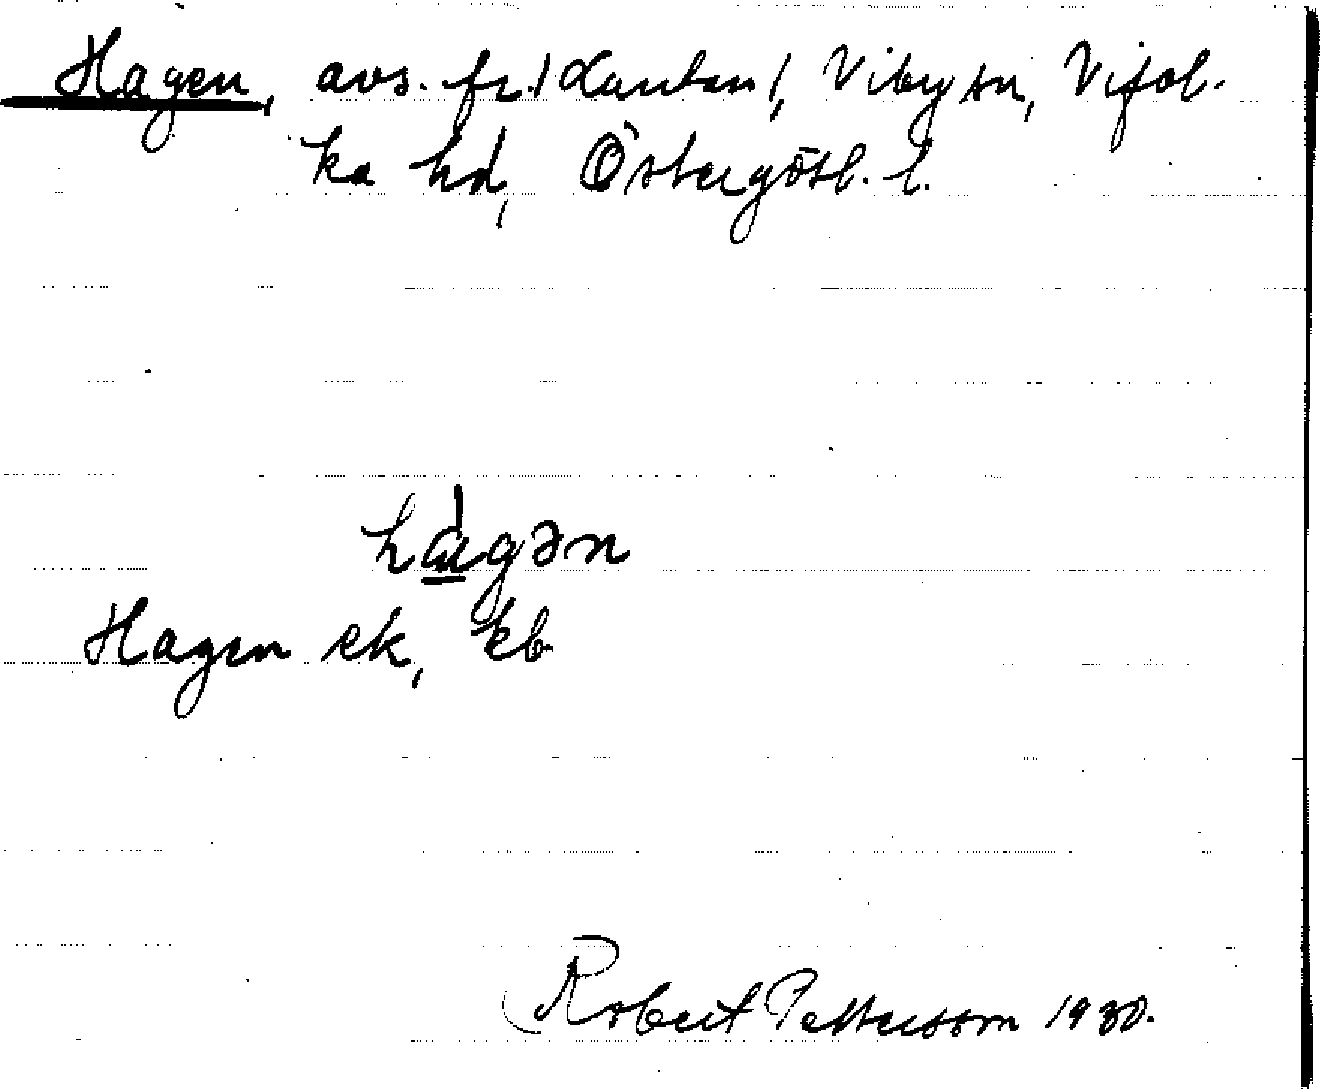 Hagen, avs. fr. /Lunten/, Viby sn, Vifol-
ka hd, Östergötl. l.
hágən
Hagen ek, kb
Robert Pettersson 1930.